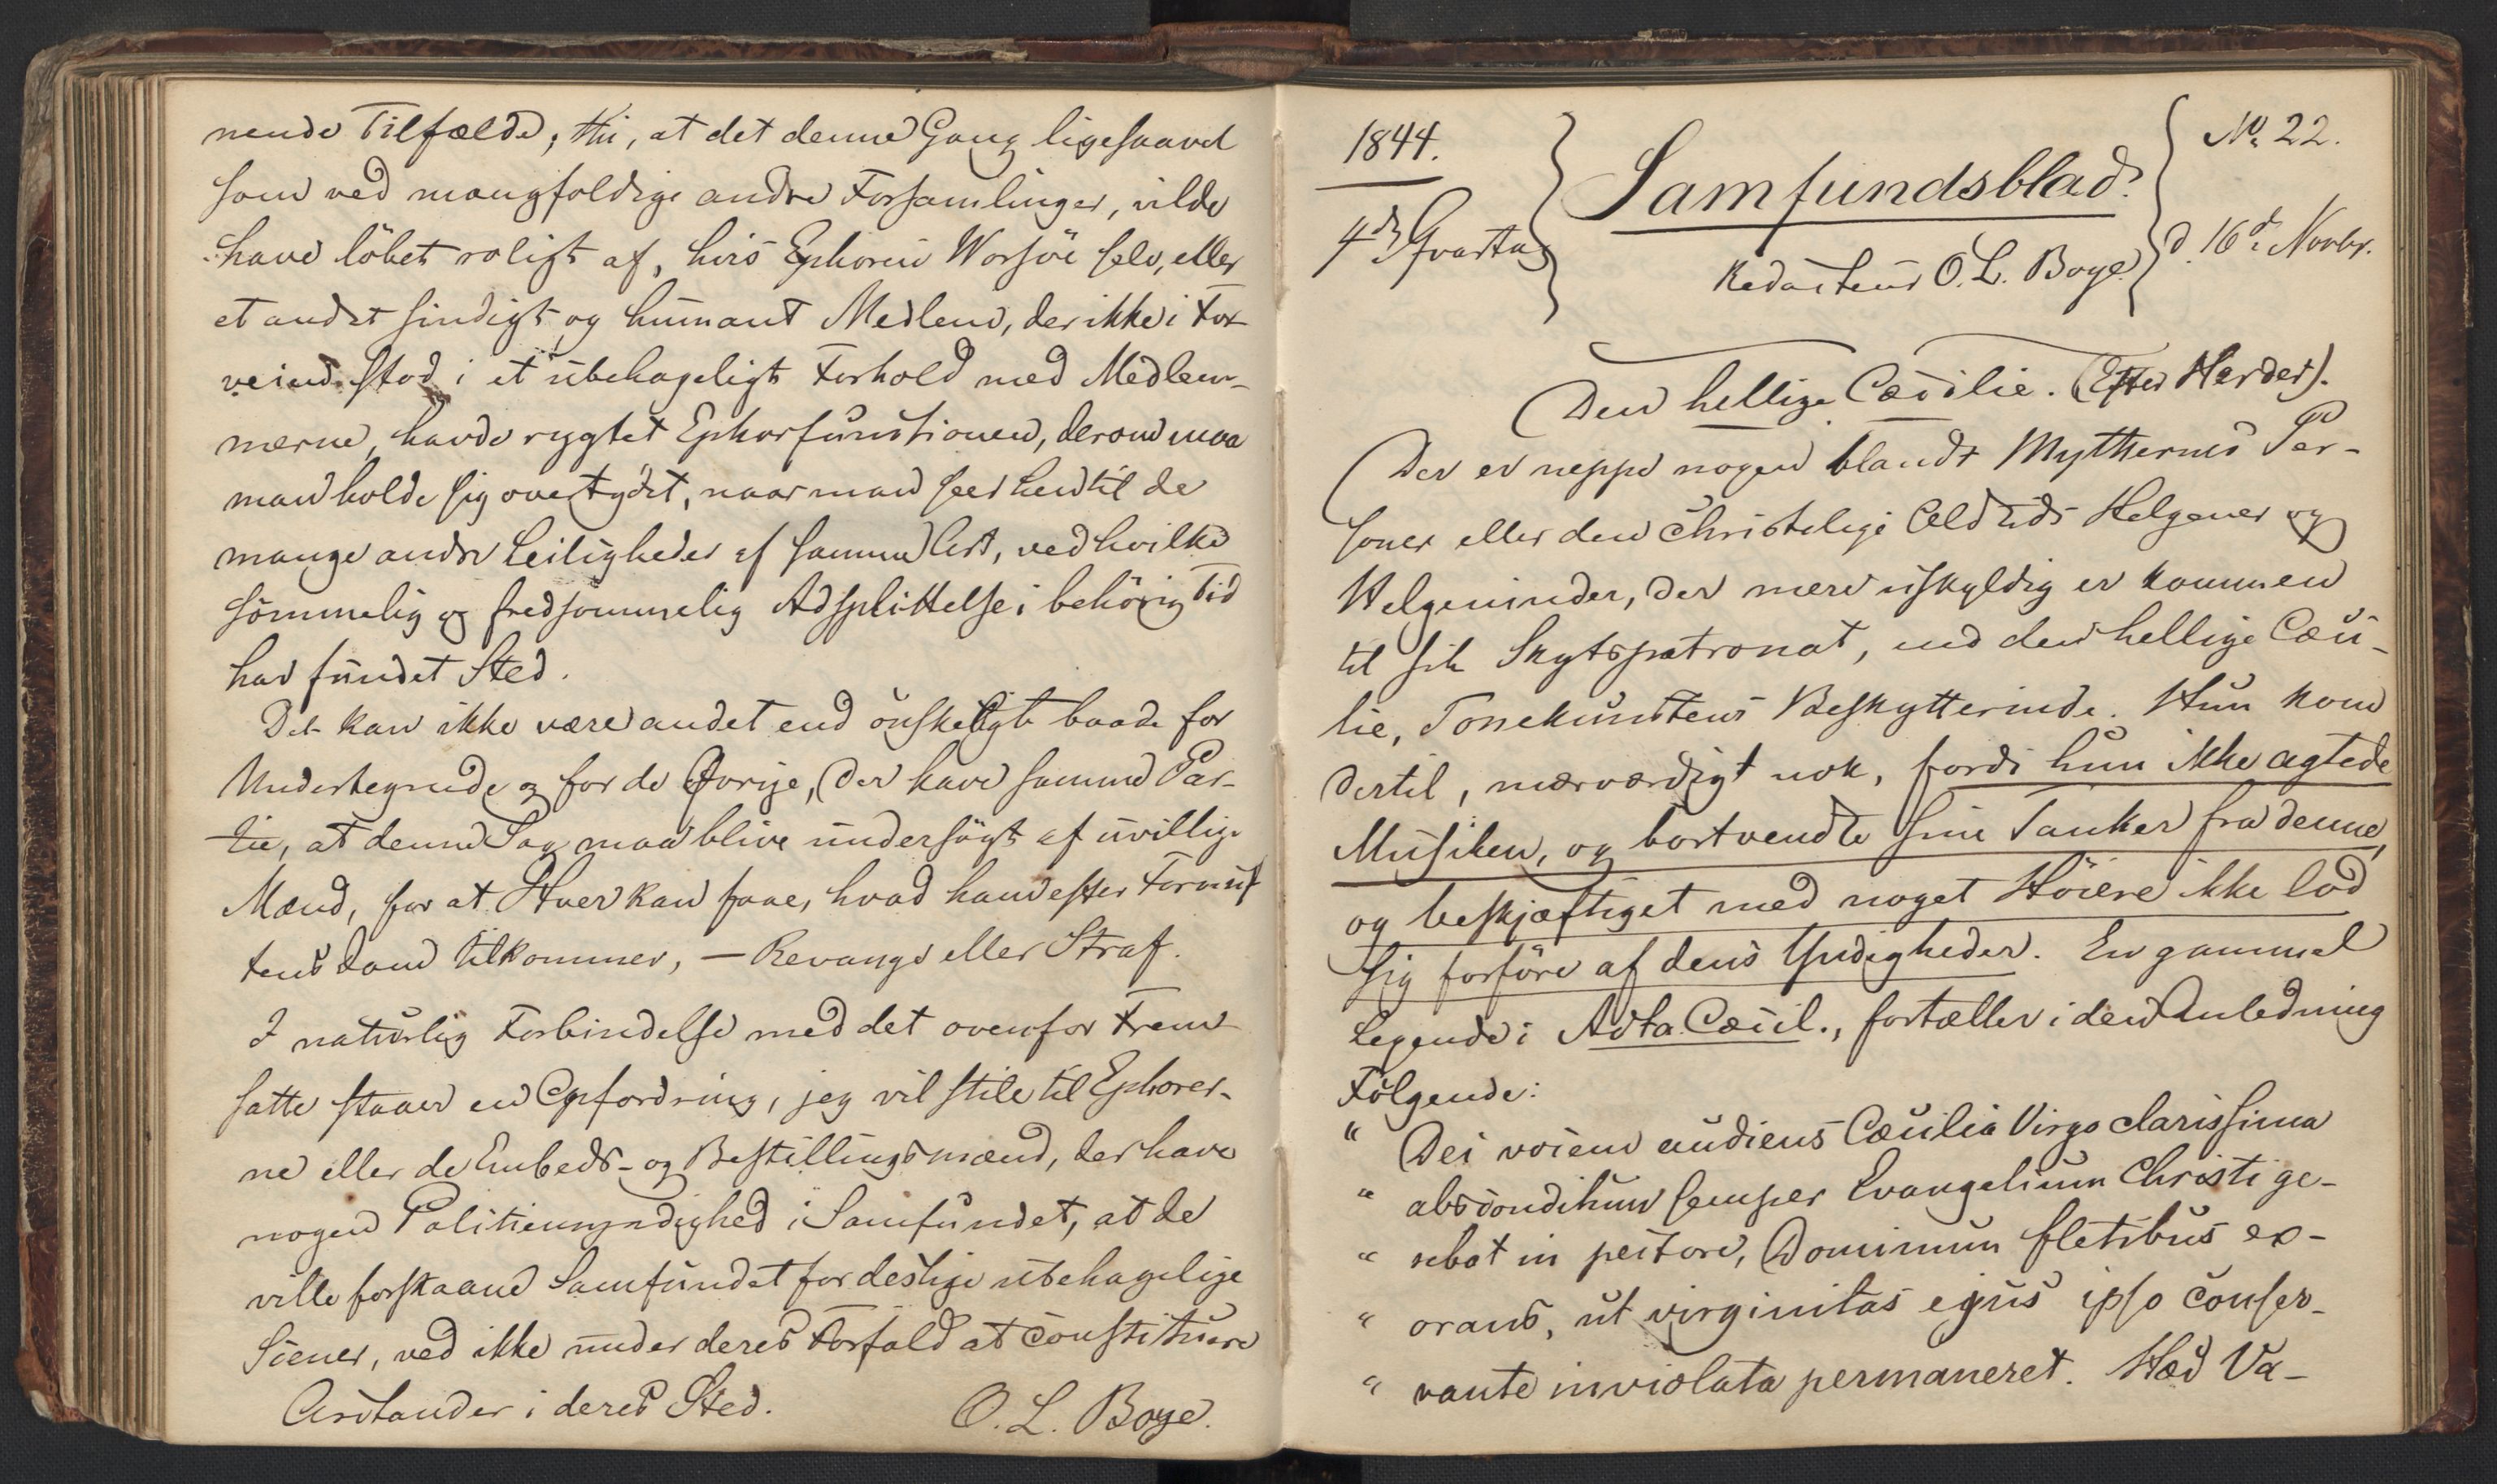 nende Tilfælde; thi, at det denne Gang ligesaavel
som ved mangfoldige andre Forsamlinger, vilde
have löbet roligt af, hvis Ephoren Worsöe selv, eller
et andet sindigt og humant Medlem, der ikke i For-
veien stod i et ubehageligt Forhold med Medlem-
merne, havde rygtet Ephorfunctionen, derom maa
man holde sig overtydet, naar man seer hen til de
mange andre Leiligheder af samme Art, ved hvilke
sömmelig og fredsommelig Adsplittelse i behörig Tid
har fundet Sted.
Det kan ikke være andet end önskeligt baade for
Undertegnede og for de Øvrige, der have samme Par-
tie, at denne Sag maa blive undersögt af uvillige
Mænd, for at Hver kan faae, hvad ham efter Fornuf
tens Dom tilkommer, — Revange eller Straf.
I naturlig Forbindelse med det ovenfor Frem-
satte staaer en Opfordring, jeg vil stile til Ephorer-
ne eller de Embeds- og Bestillingsmænd, der have
nogen Politiemyndighed i Samfundet, at de
ville forskaane Samfundet for deslige ubehagelige
Scener, ved ikke under deres Forfald at constituere
i deres Sted.
O. L. Boye.
1844.
4de Qvartal
Samfundsblad.
Redacteur O. L. Boye.
No 22.
d. 16de Novbr.
Den hellige Cæcilie. (Efter Herder).
Der er neppe nogen blandt Mythernes Per-
soner eller den christelige Oldtids Helgener og
Helgeninder, der mere uskyldig er kommen
til sit Skytspatronat, end den hellige Cæci-
lie, Tonekunstens Beskytterinde. Hun kom
dertil, mærværdigt nok, fordi hun ikke agtede
Musiken, og bortvendte sine Tanker fra denne,
og beskjæftiget med noget Höiere ikke lod
sig forföre af dens Yndigheder. En gammel
Legende i Acta Cæcil., fortæller i den Anledning
Fölgende:
" Dei vocem audiens Cæcilia Virgo clarissima
" absconditum semper Evangelium Christi ge-
" rebat in pectore, Dominum fletibus ex-
" orans, ut virginitas ejus ipso conser-
" vante inviolata permaneret. Hæc Va-